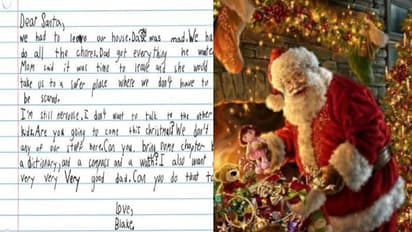 Dear Santa,
we had to leave our house. Dad was mad. We ha
do all the chores. Dad get everything he wate
Mom said it was time to leave and she would
take us to a safer place where we don't have to
be scared.
I'm still nervouse. I don't want to talk to the other
kids. Are you going to come this christmas? We don't
any of our stuff here. Can you bring some chapter b
a dictionary, and a compass and a wath? I also want
very very very good dad. Can you do that to
Love,
Blake